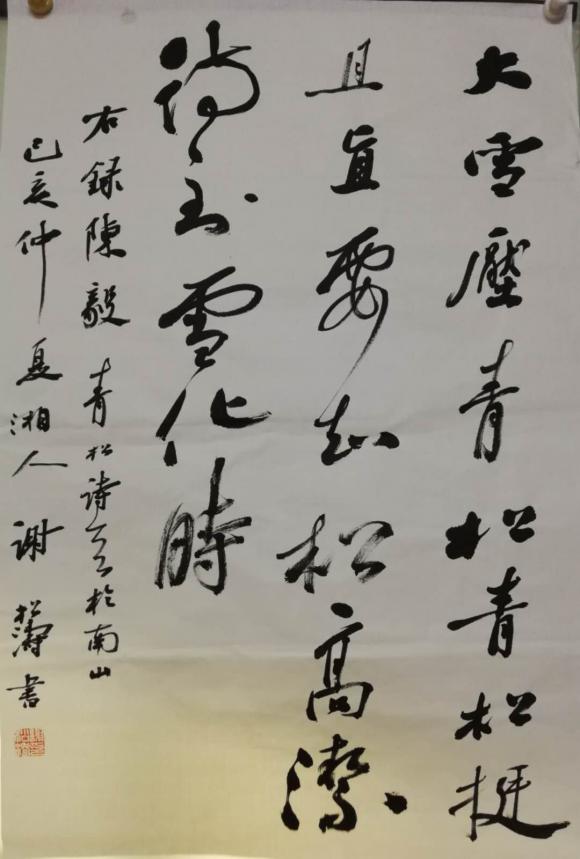 大雪壓青松青松挺
且直要知松高潔
待到雪化時
右録陳毅青松詩一首於南山
己亥仲夏湘人谢松濤書